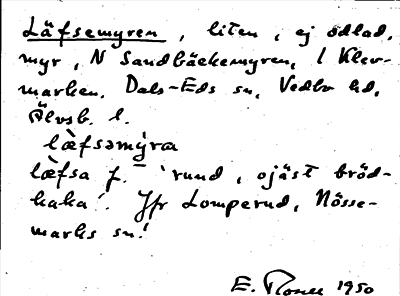 Läfsemyren, liten, ej odlad.
myr, N Sandbäckemyren, i Klev-
marken. Dals-Eds sn, Vedbo hd,
Älvsb. l.
læ̀fsəmýra
læ̀fsa f. 'rund, ojäst bröd-
kaka'. Jfr Lomperud, Nösse-
marks sn!
E. Rosell 1950